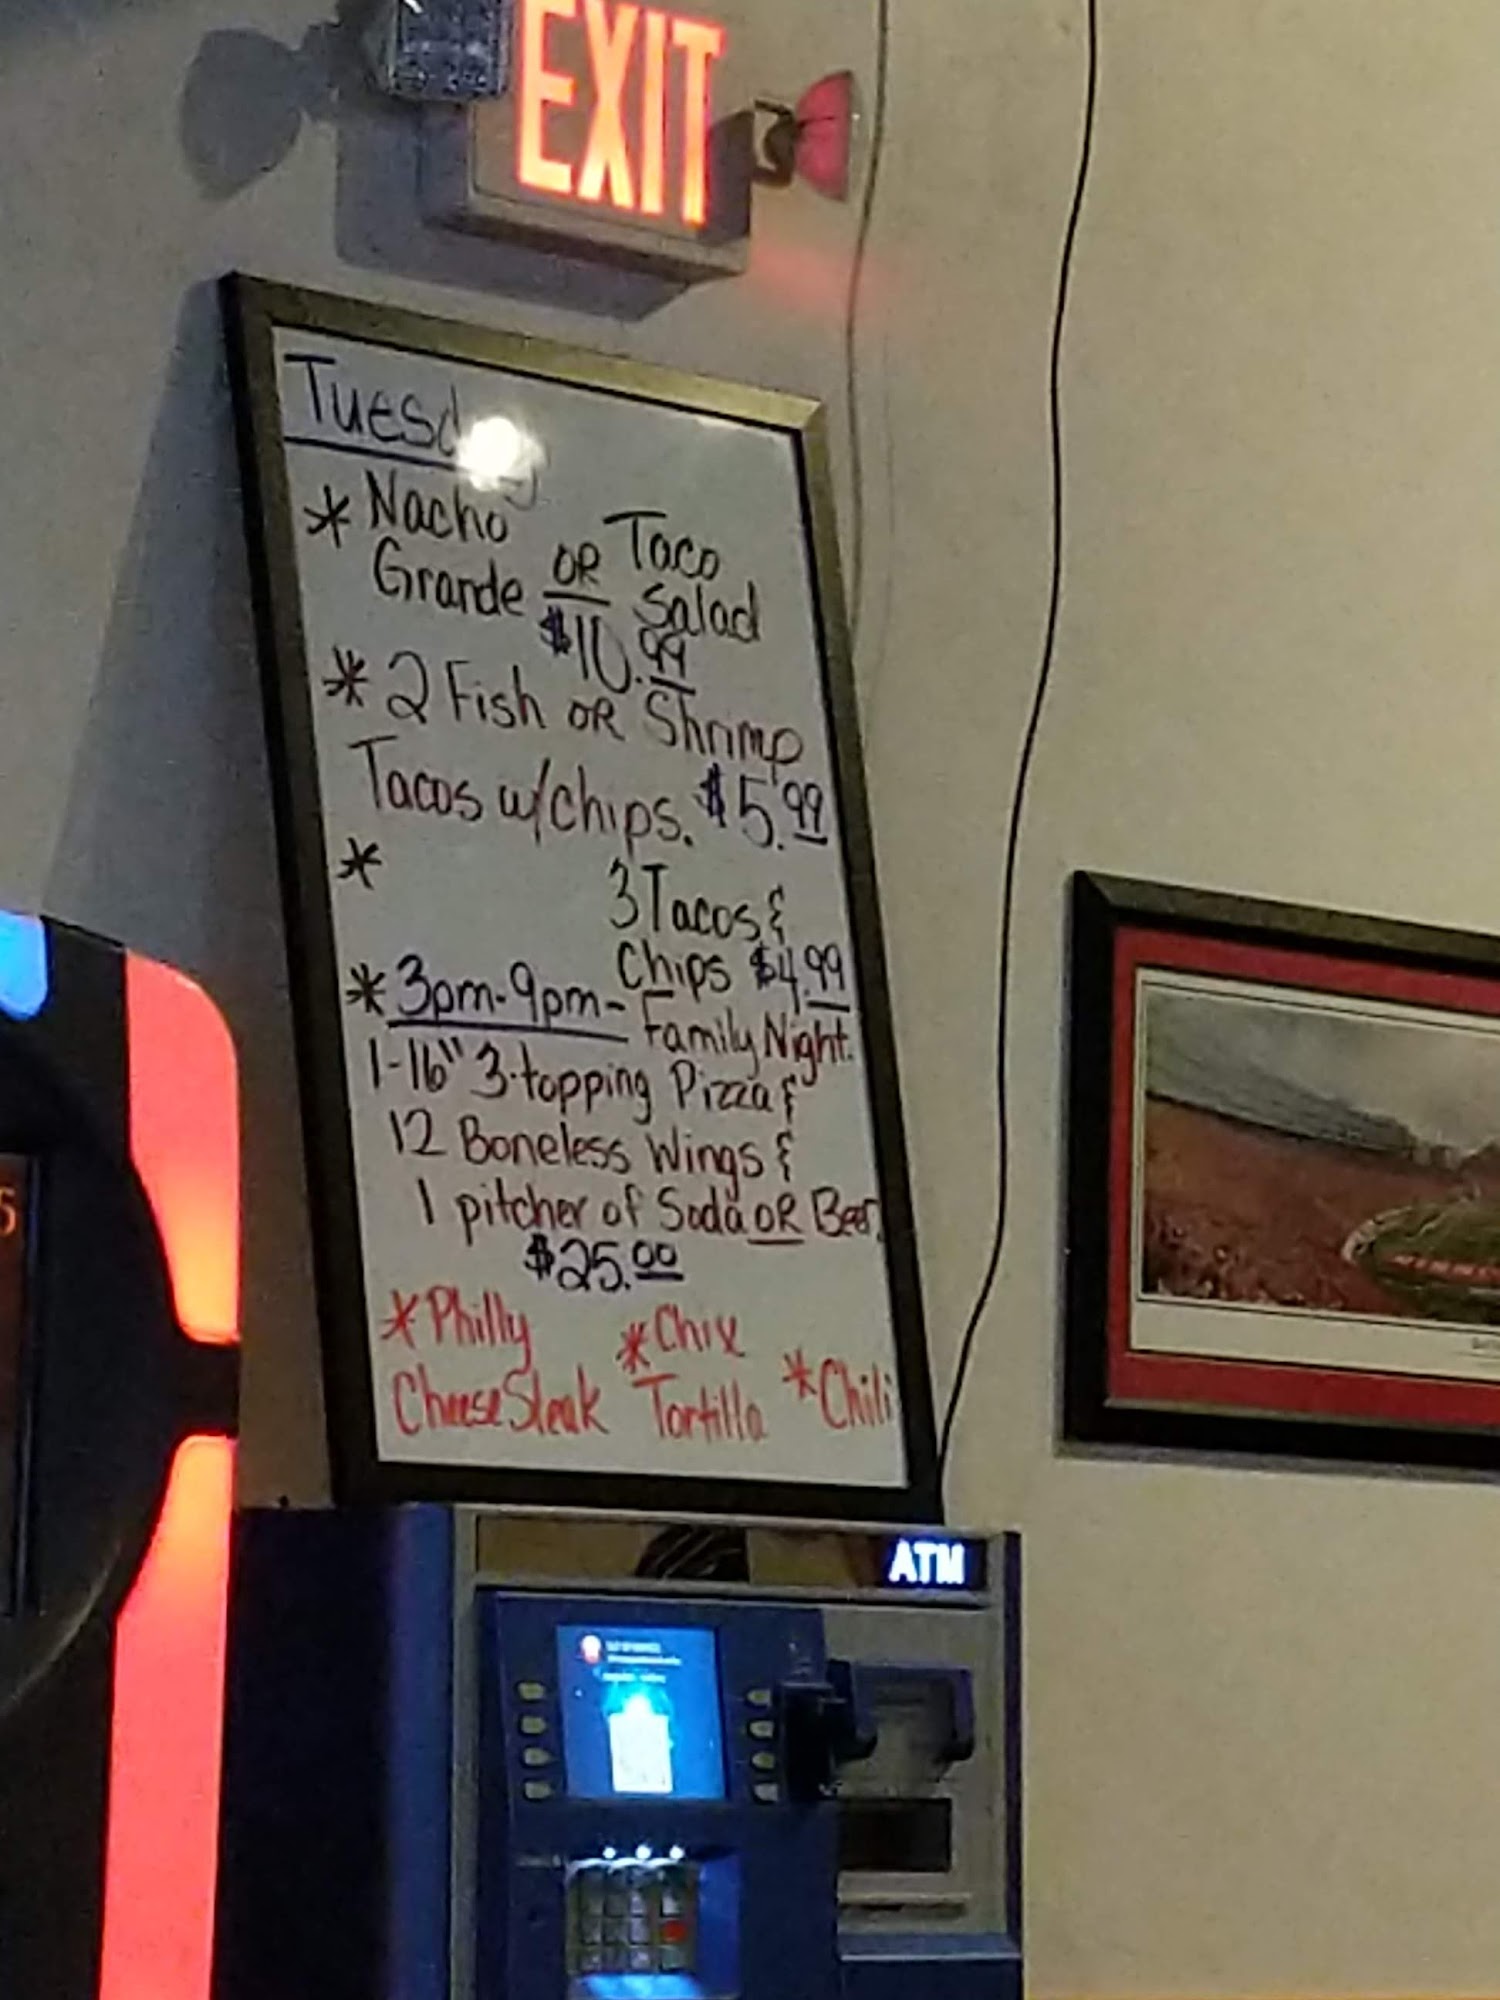 EXIT
Tuesday
* Nacho Grande OR Taco Salad
$10.99
* 2 Fish OR Shrimp
Tacos w/chips. $5.99
*
3 Tacos &
Chips $4.99
* 3pm-9pm- Family Night.
1-16" 3-topping Pizza &
12 Boneless Wings &
1 pitcher of Soda OR Beer.
$25.00
* Philly Cheese Steak
* Chix Tortilla
* Chili
ATM